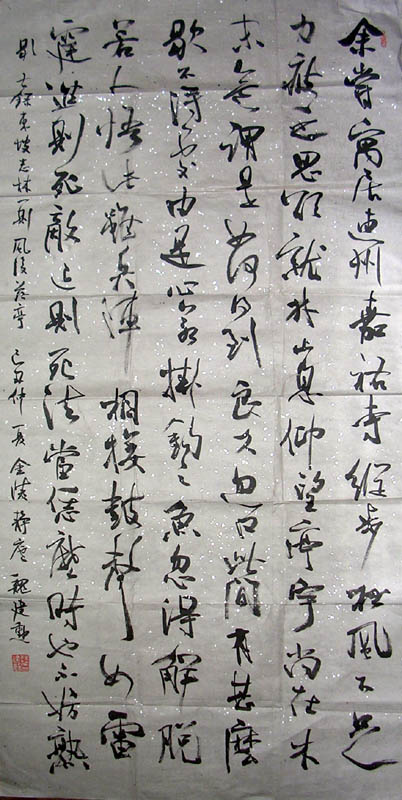 余嘗寓居惠州嘉祐寺縱步松風下足
力疲乏思欲就林止息仰望亭宇尚在木
末意謂是如何得到良久忽曰此間有甚麼
歇不得處由是心若掛鈎之魚忽得解脫
若人悟此雖兵陣相接鼓聲如雷
霆進則死敵退則死法當恁麼時也不妨熟
歇 錄東坡志林一則 風後落亭 己丑仲夏金陵靜庵魏建